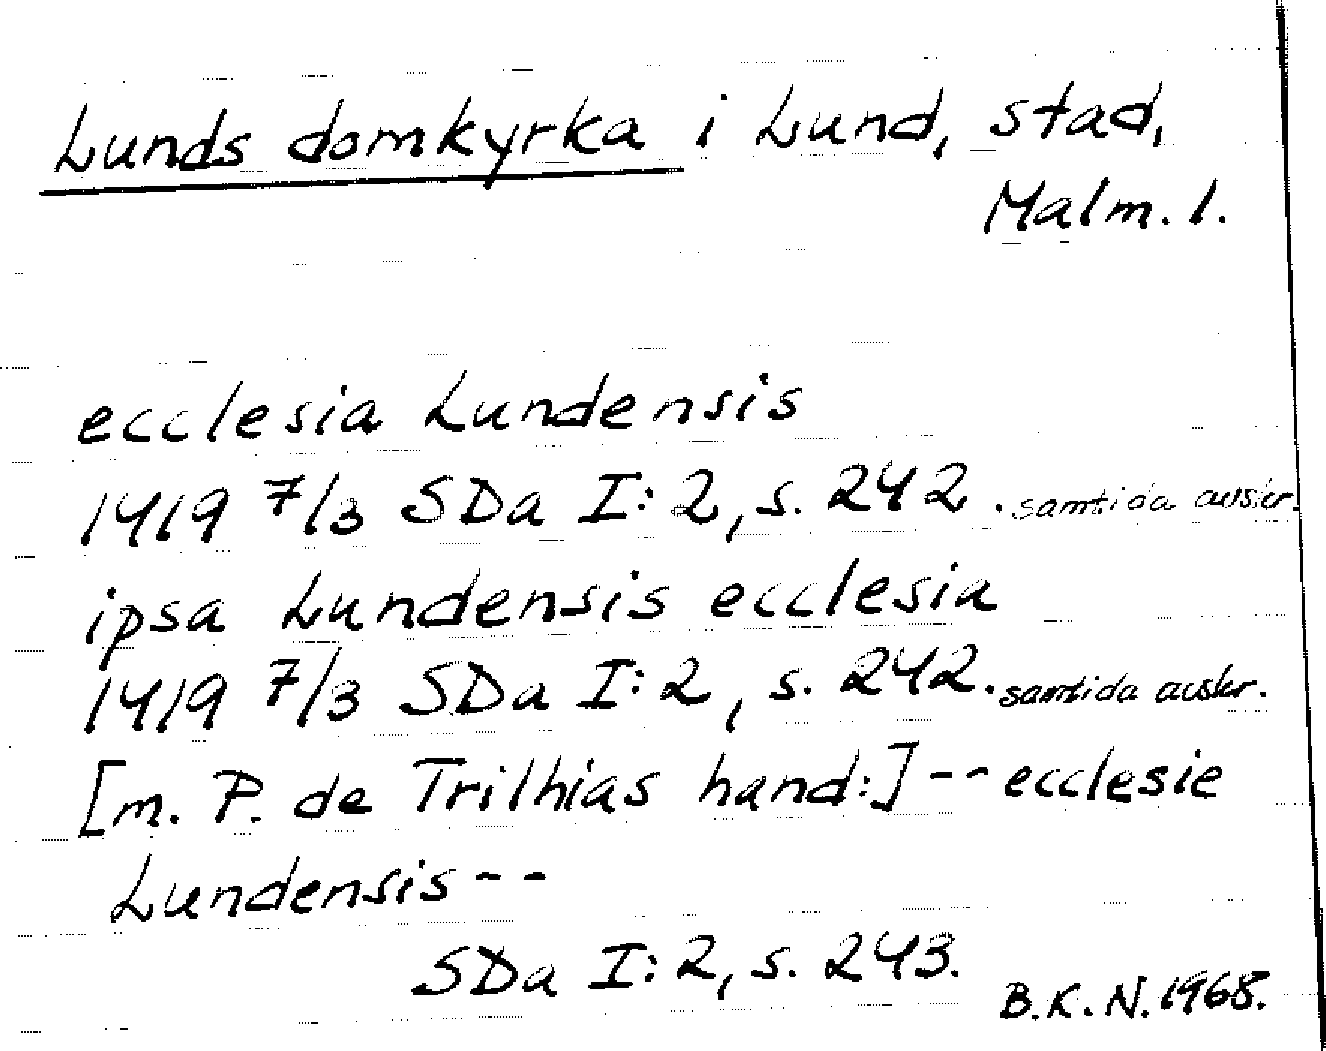 Lunds domkyrka i Lund, stad,
Malm. l.
ecclesia Lundensis
1419 7/3 SDa I:2, s. 242. samtida avskr.
ipsa Lundensis ecclesia
1419 7/3 SDa I:2, s. 242. samtida avskr.
[m. P. de Trilhias hand:] -- ecclesie
Lundensis --
SDa I:2, s. 243.
B.K.N. 1968.